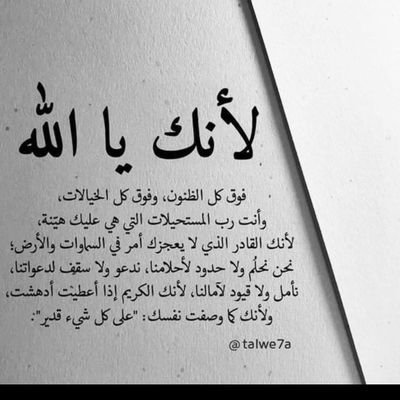 لأنك يا الله
فوق كل الظنون، وفوق كل الخيالات،
وأنت رب المستحيلات التي هي عليك هيّنة،
لأنك القادر الذي لا يعجزك أمر في السماوات والأرض؛
نحن نحلُم ولا حدود لأحلامنا، ندعو ولا سقِف لدعواتنا،
نأمل ولا قيود لآمالنا، لأنك الكريم إذا أعطيت أدهشت،
ولأنك كما وصفت نفسك: "على كل شيء قدير".
@talwe7a